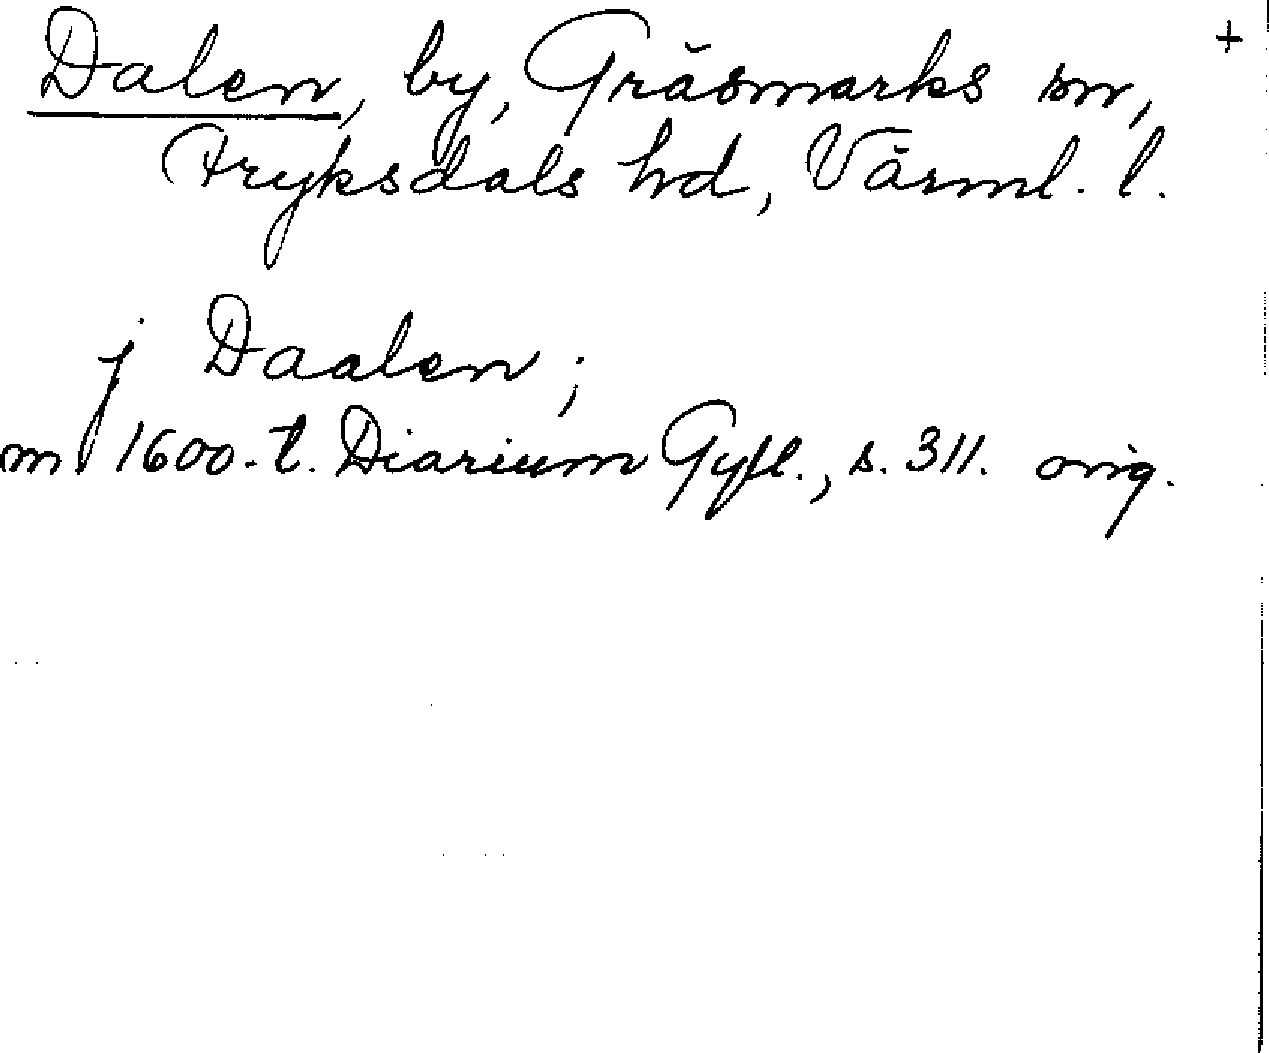 Dalen, by, Gräsmarks sn, +
Fryksdals hd, Värml. l.
j Daalen;
m 1600-t. Diarium Gyll., s. 311. orig.